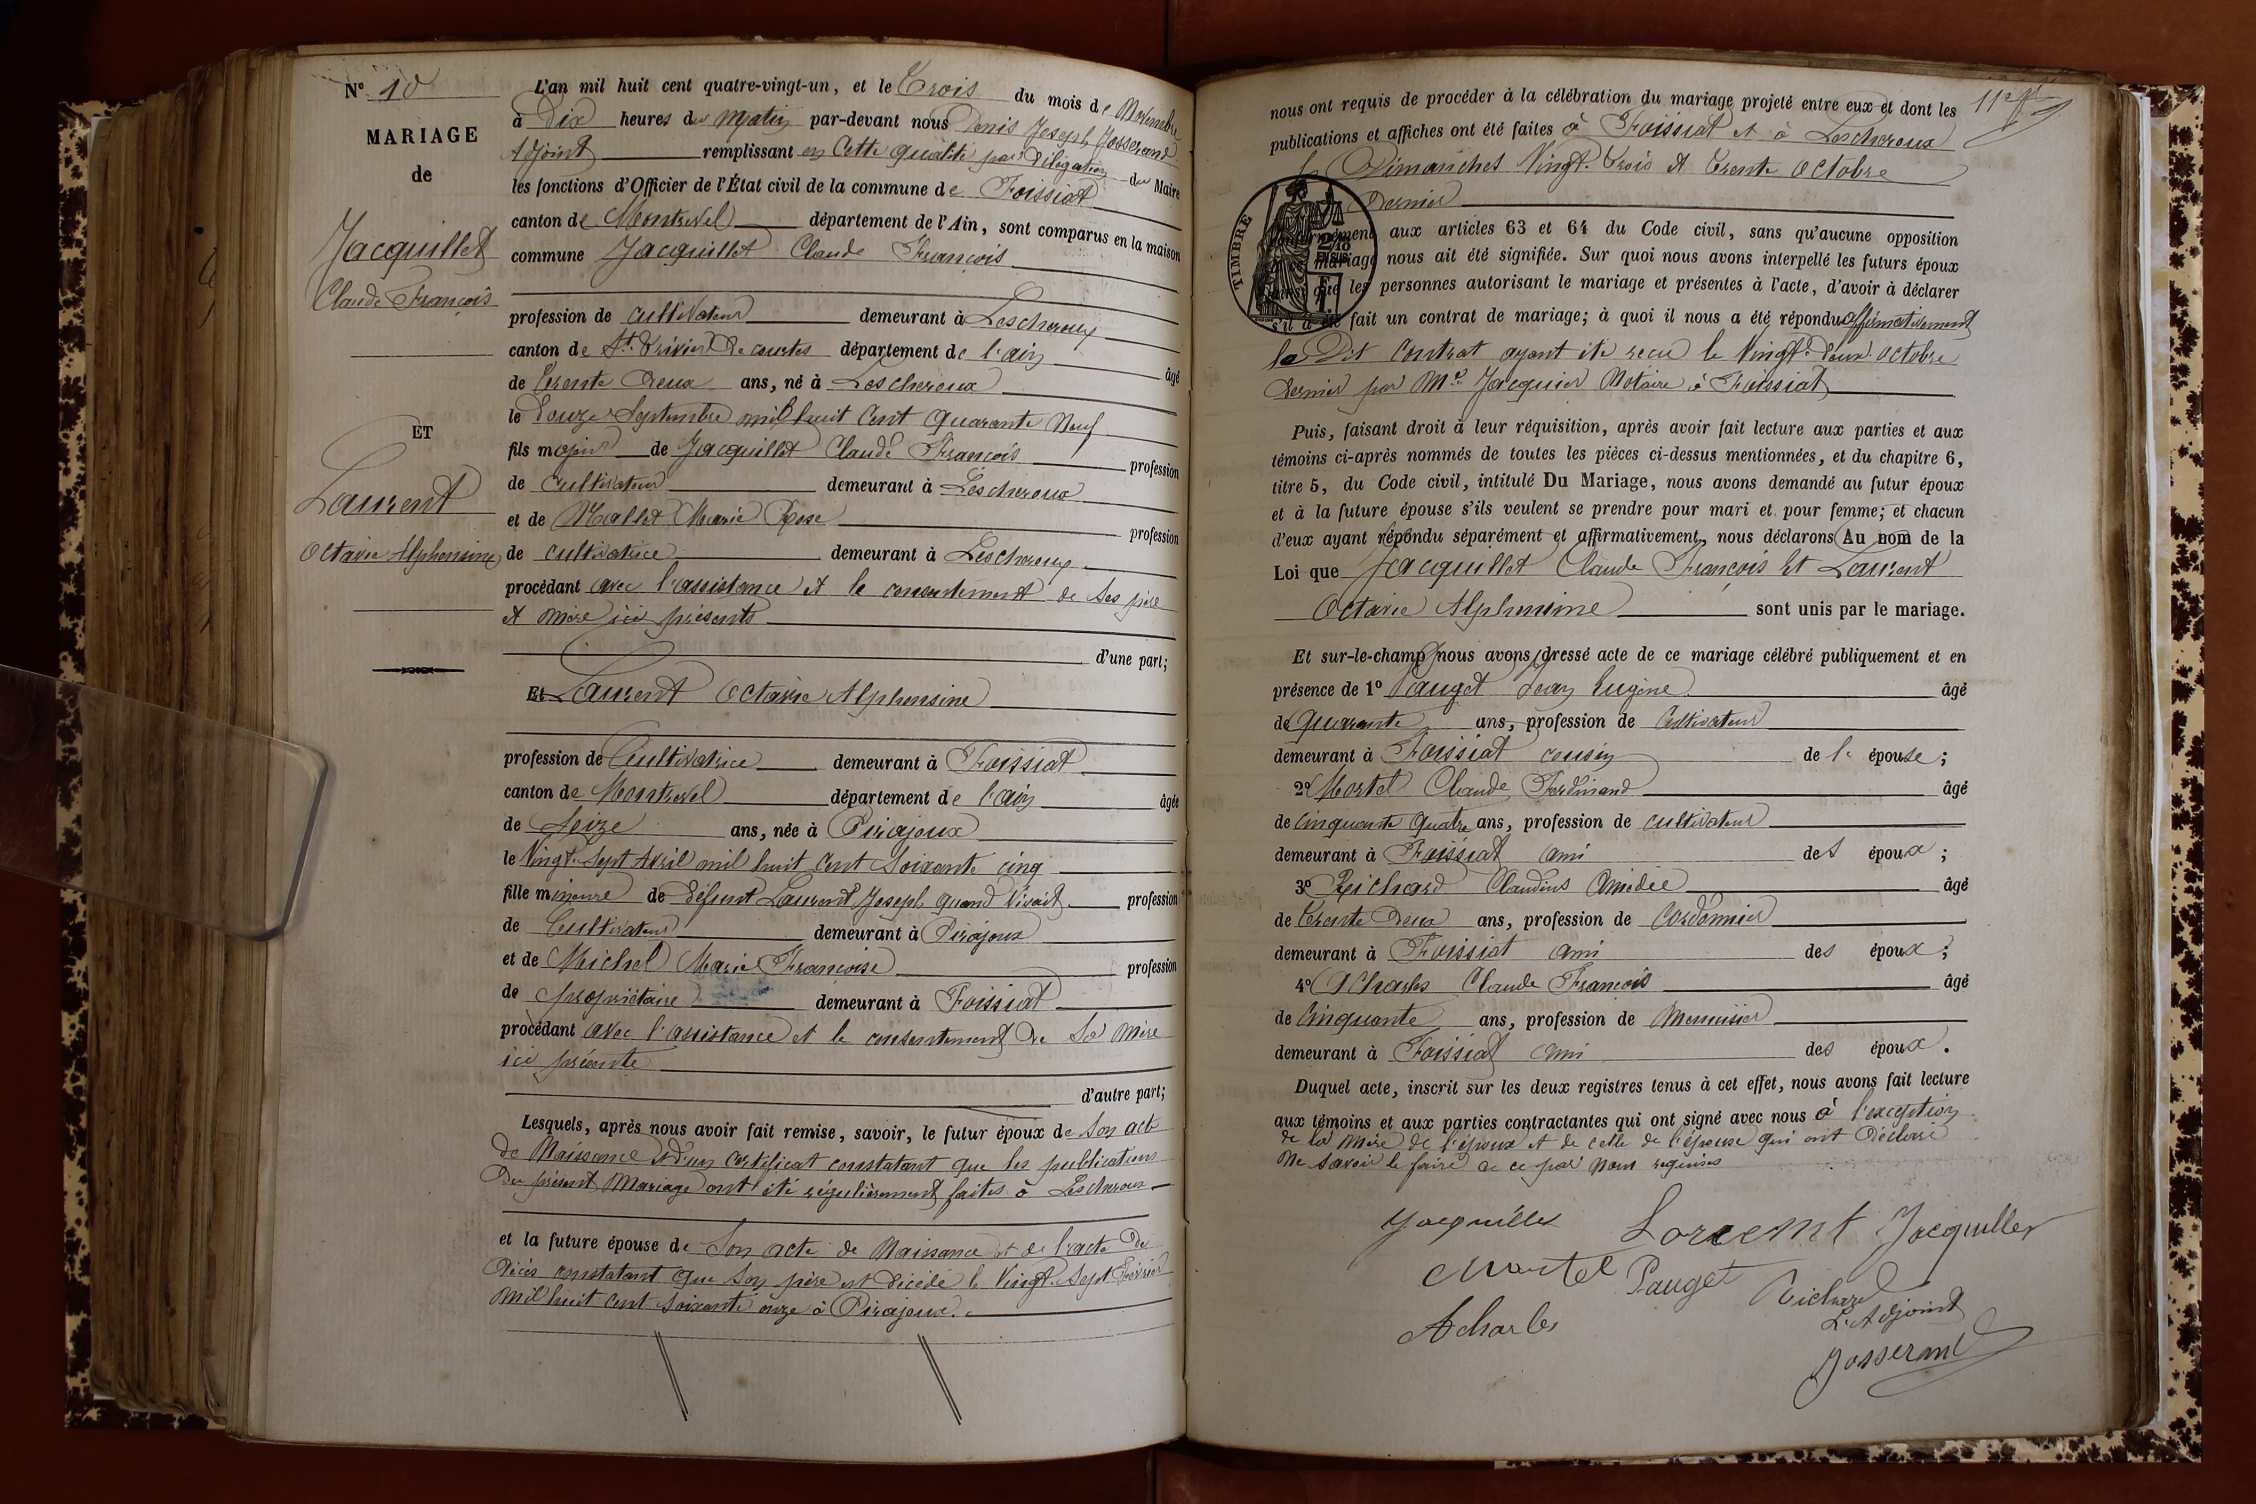 N° 10
MARIAGE
de
Jacquillet
Claude François
ET
Laurent
Octavie Alphonsine
L'an mil huit cent quatre-vingt-un, et le Trois du mois de Novembre
à Dix heures du Matin par-devant nous Denis Joseph Josserand
Adjoint remplissant en Cette qualité par Délégation du Maire
les fonctions d'Officier de l'État civil de la commune de Foissiat
canton de Montrevel département de l'Ain, sont comparus en la maison
commune Jacquillet Claude François
profession de cultivateur demeurant à Lescheroux
canton de St. Trivier De courtes département de l'ain âgé
de Trente Deux ans, né à Lescheroux
le Douze Septembre mil huit Cent Quarante Neuf
fils majeur de Jacquillet Claude François profession
de Cultivateur demeurant à Lescheroux
et de Mallet Marie Rose profession
de cultivatrice demeurant à Lescheroux
procédant avec l'assistance et le consentement de ses père
et mère ici présents
d'une part;
Et Laurent Octavie Alphonsine
profession de Cultivatrice demeurant à Foissiat
canton de Montrevel département de l'ain âgée
de Seize ans, née à Pirajoux
le Vingt-Sept Avril mil huit Cent Soixante cinq
fille mineure de Défunt Laurent Joseph quand Vivait profession
de Cultivateur demeurant à Pirajoux
et de Michel Marie Françoise profession
de propriétaire demeurant à Foissiat
procédant avec l'assistance et le consentement De Sa Mère
ici présente
d'autre part;
Lesquels, après nous avoir fait remise, savoir, le futur époux de Son acte
de Naissance et d'un Certificat constatant que les publications
Du présent Mariage ont été régulièrement faites à Lescheroux
et la future épouse de Son acte de Naissance et de l'acte De
Décès constatant que Son père est Décédé le Vingt-Sept Février
Mil huit cent soixante onze à Pirajoux.
11e
nous ont requis de procéder à la célébration du mariage projeté entre eux et dont les
publications et affiches ont été faites à Foissiat et à Lescheroux
les Dimanches Vingt-Trois et Trente Octobre
Dernier
TIMBRE
conformément aux articles 63 et 64 du Code civil, sans qu'aucune opposition
mariage nous ait été signifiée. Sur quoi nous avons interpellé les futurs époux
ainsi que les personnes autorisant le mariage et présentes à l'acte, d'avoir à déclarer
s'il a été fait un contrat de mariage; à quoi il nous a été répondu affirmativement
le Dit Contrat ayant été reçu le Vingt-Deux octobre
Dernier par Me Jacquier Notaire à Foissiat
Puis, faisant droit à leur réquisition, après avoir fait lecture aux parties et aux
témoins ci-après nommés de toutes les pièces ci-dessus mentionnées, et du chapitre 6,
titre 5, du Code civil, intitulé Du Mariage, nous avons demandé au futur époux
et à la future épouse s'ils veulent se prendre pour mari et pour femme; et chacun
d'eux ayant répondu séparément et affirmativement, nous déclarons Au nom de la
Loi que Jacquillet Claude François Et Laurent
Octavie Alphonsine sont unis par le mariage.
Et sur-le-champ nous avons dressé acte de ce mariage célébré publiquement et en
présence de 1° Pauget Jean Eugène âgé
de Quarante ans, profession de Cultivateur
demeurant à Foissiat cousin de l'épouse;
2° Mortel Claude Ferdinand âgé
de Cinquante Quatre ans, profession de cultivateur
demeurant à Foissiat ami des époux;
3° Richard Claudius Amédée âgé
de Trente Deux ans, profession de Cordonnier
demeurant à Foissiat ami des époux;
4° Acharles Claude François âgé
de Cinquante ans, profession de Menuisier
demeurant à Foissiat ami des époux.
Duquel acte, inscrit sur les deux registres tenus à cet effet, nous avons fait lecture
aux témoins et aux parties contractantes qui ont signé avec nous à l'exception
de la Mère de l'époux et de celle de l'épouse qui ont Déclaré
Ne savoir le faire de ce par Nous requises
Jacquillet Lorcent Jacquillet
Mortel Pauget Richard
Acharles L'Adjoint
Josserand